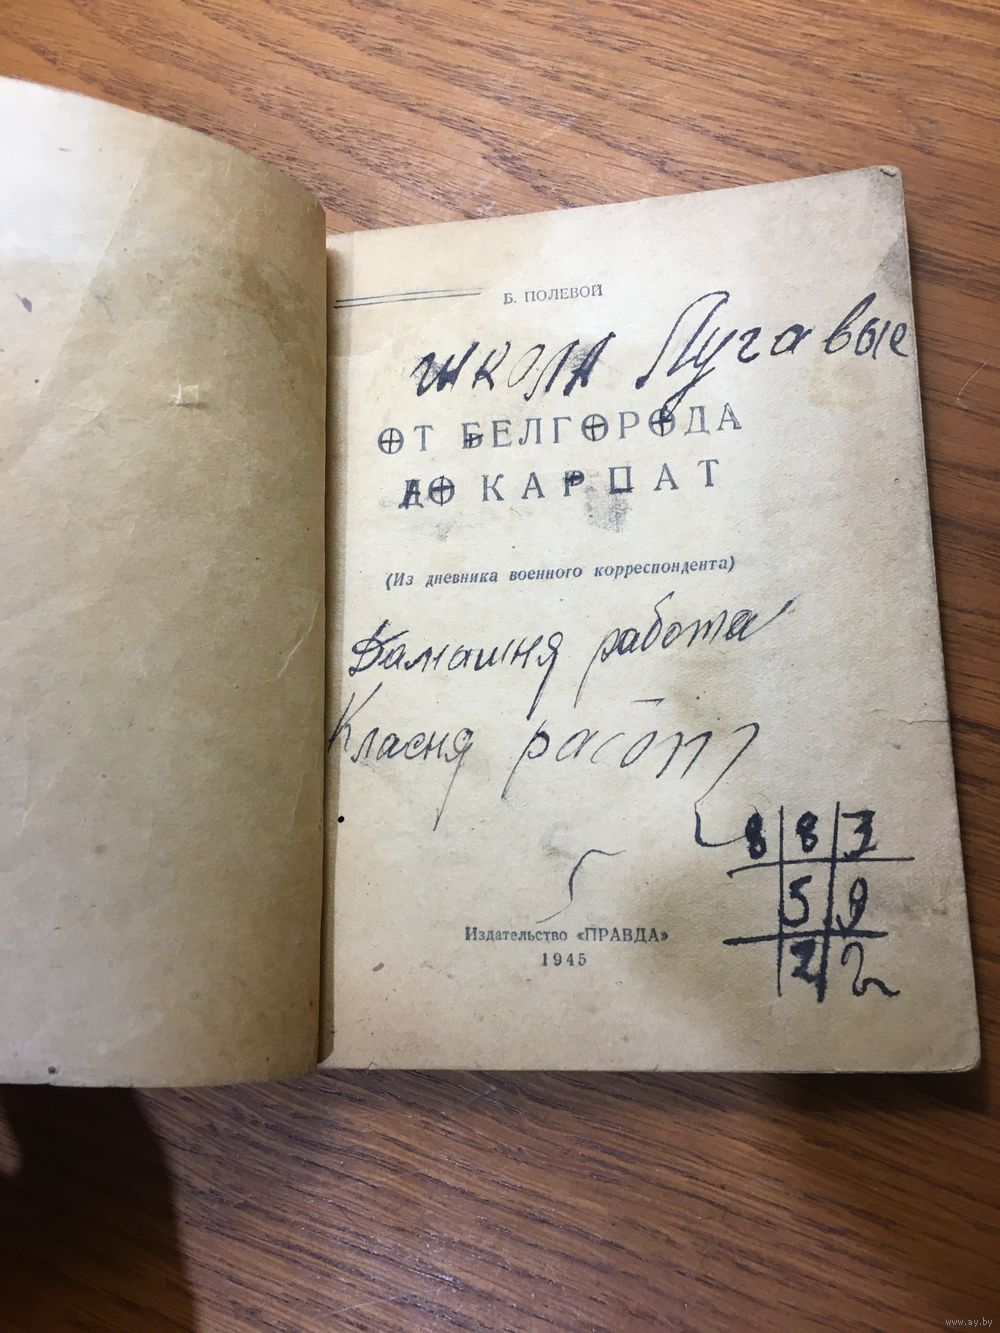 Б. ПОЛЕВОЙ
школа Лугавые
ОТ БЕЛГОРОДА
ДО КАРПАТ
(Из дневника военного корреспондента)
Дамашня работа
Класня работ
8 8 3
5 9
2 2
Издательство «ПРАВДА»
1945
www.ay.by